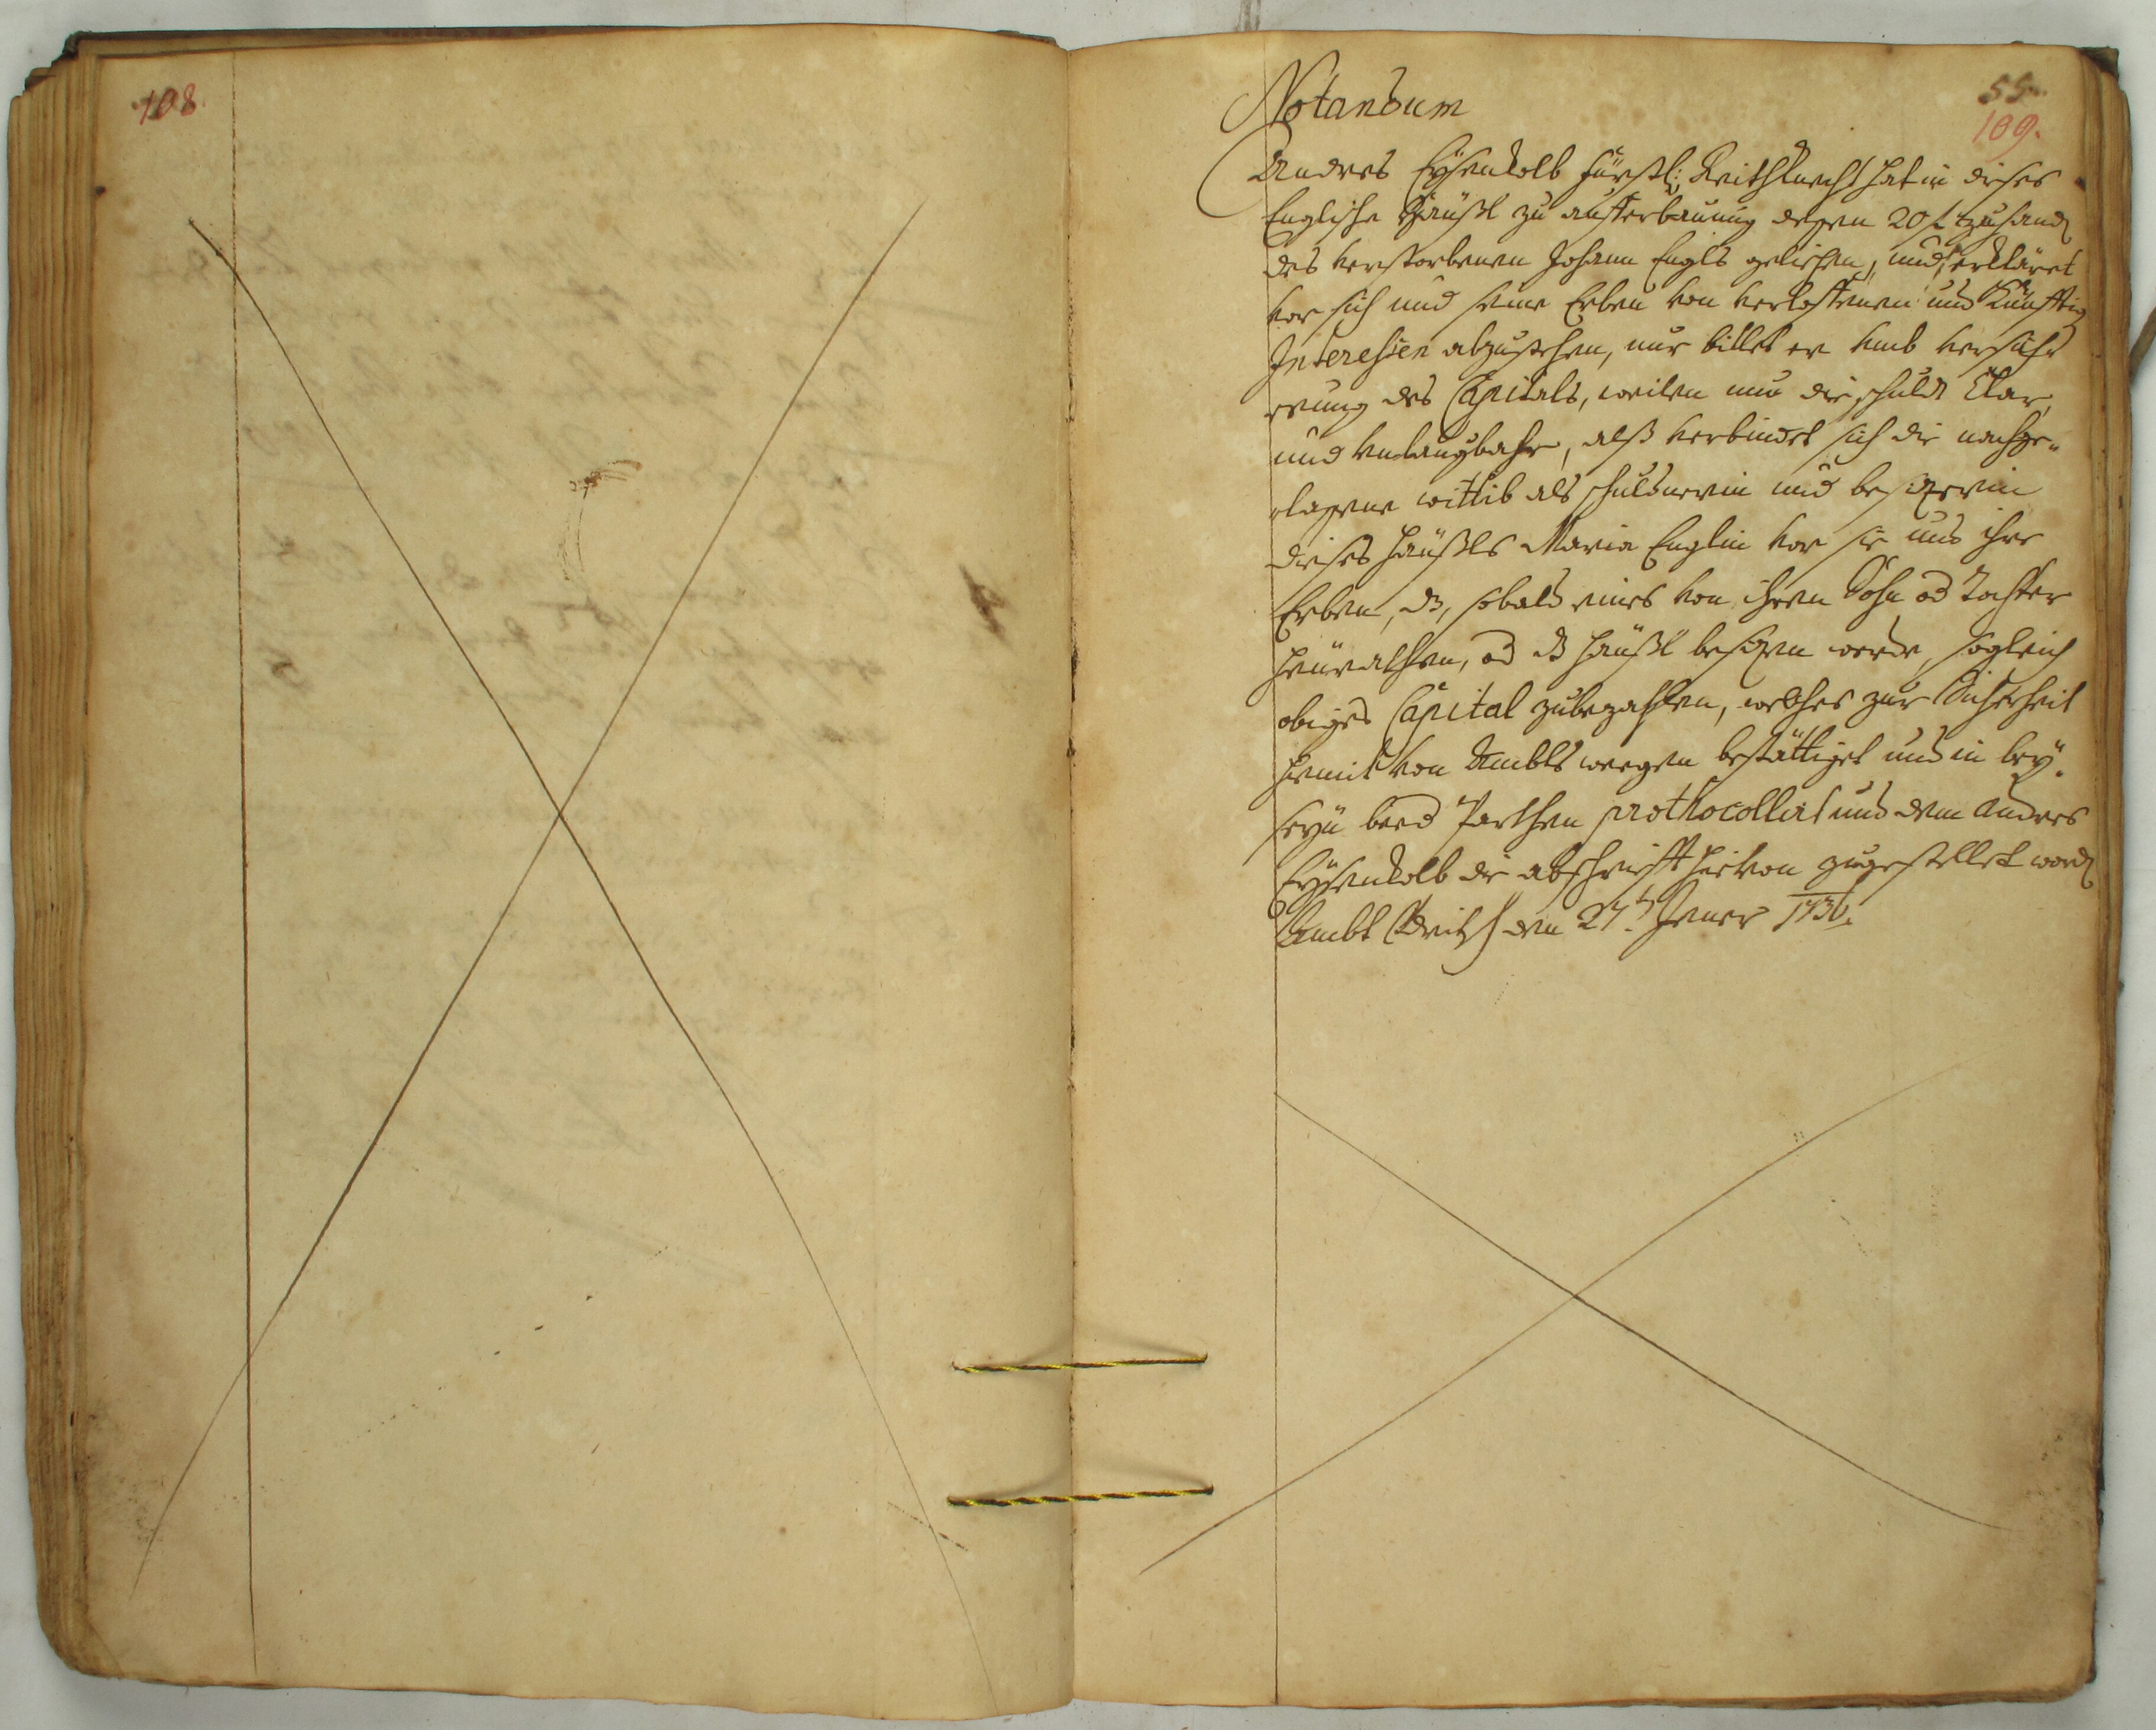 108.
55.
109.
Notandum
Andres Eÿsenkolb fürstl: Reithknecht hat in dieses
Englische Häußl zu aufferbauung deßen 20 f zuhand
des verstorbenen Johann Engls geliehen, und erkläret
vor sich und seine Erben von verloffenen und künfftig
Interessen abzustehen, nur bittet er umb versiche
rung des Capitals, weilen nun die schuldt klar,
und unlaugbahr, alß verbindet sich die nachge„
„laßene wittib als schuldnerin und besizerin
dieses häußls Maria Englin vor sie und ihre
Erben, dz, sobald eines von ihren Sohn od Tochter
heürathen, od dz häußl besizen werde, sogleich
obiges Capital zubezahlen, welches zur Sicherheit
hemit von Ambts weegen bestättiget und in beÿ„
seÿn beed Parthen prothocollirt und dem Andres
Eÿsenkolb die abschrifft hiervon zugestellet word
Ambt den 27t. Jener 1736.